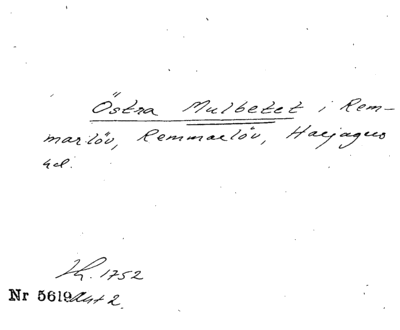 Östra Mulbetet i Rem-
marlöv, Remmarlöv, Harjagers
hd.
Kh. 1752
Nr 5619 Akt 2.